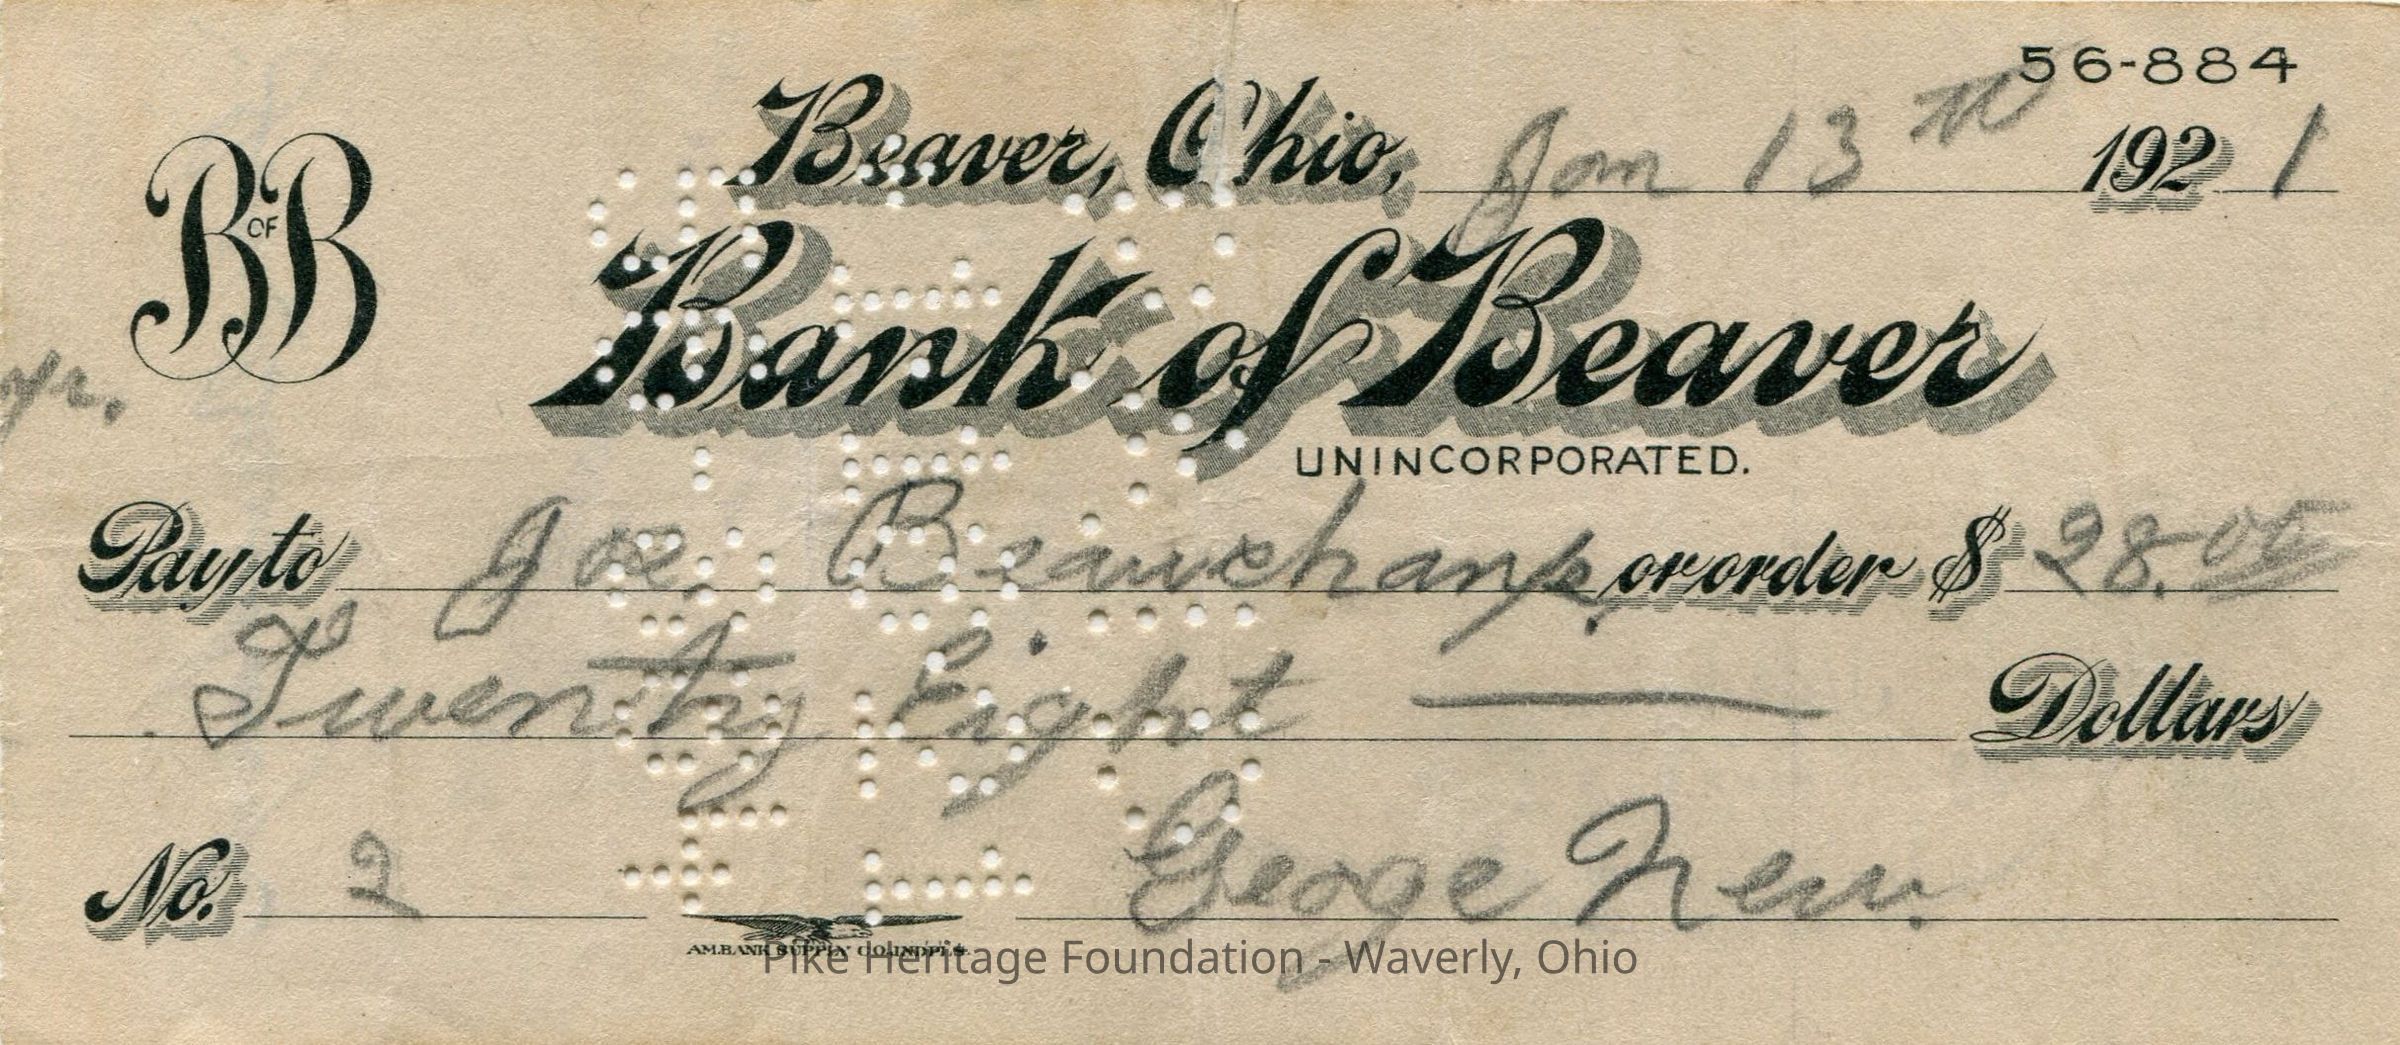 56-884
Beaver, Ohio, Jan 13 th 1921
B OF B
Bank of Beaver
UNINCORPORATED.
Pay to Joe Beauchamp. or order $ 28.00
Twenty Eight Dollars
No. 2 George New.
AM.BANK SUPPLY CO.INDPLS.
Pike Heritage Foundation - Waverly, Ohio